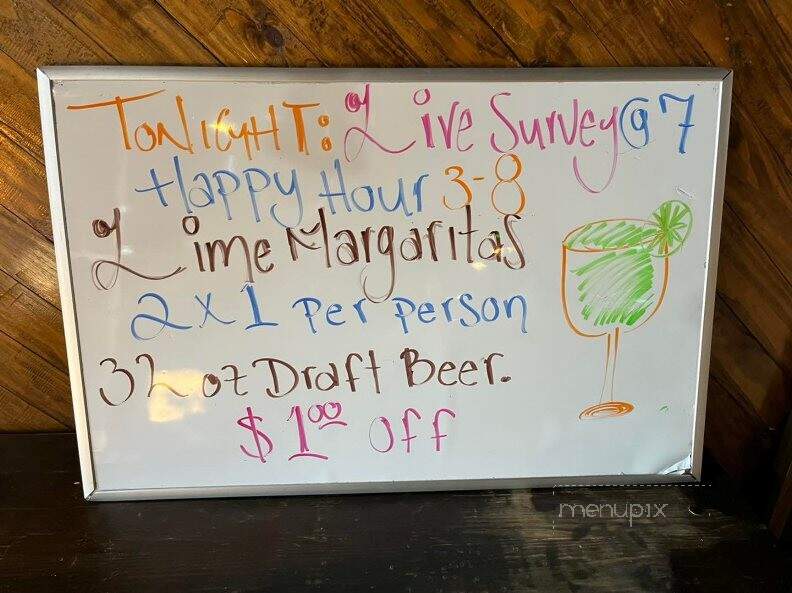 TONIGHT: Live Survey@7
Happy Hour 3-8
Lime Margaritas
2x1 per person
32 oz Draft Beer.
$1.00 Off
menupix